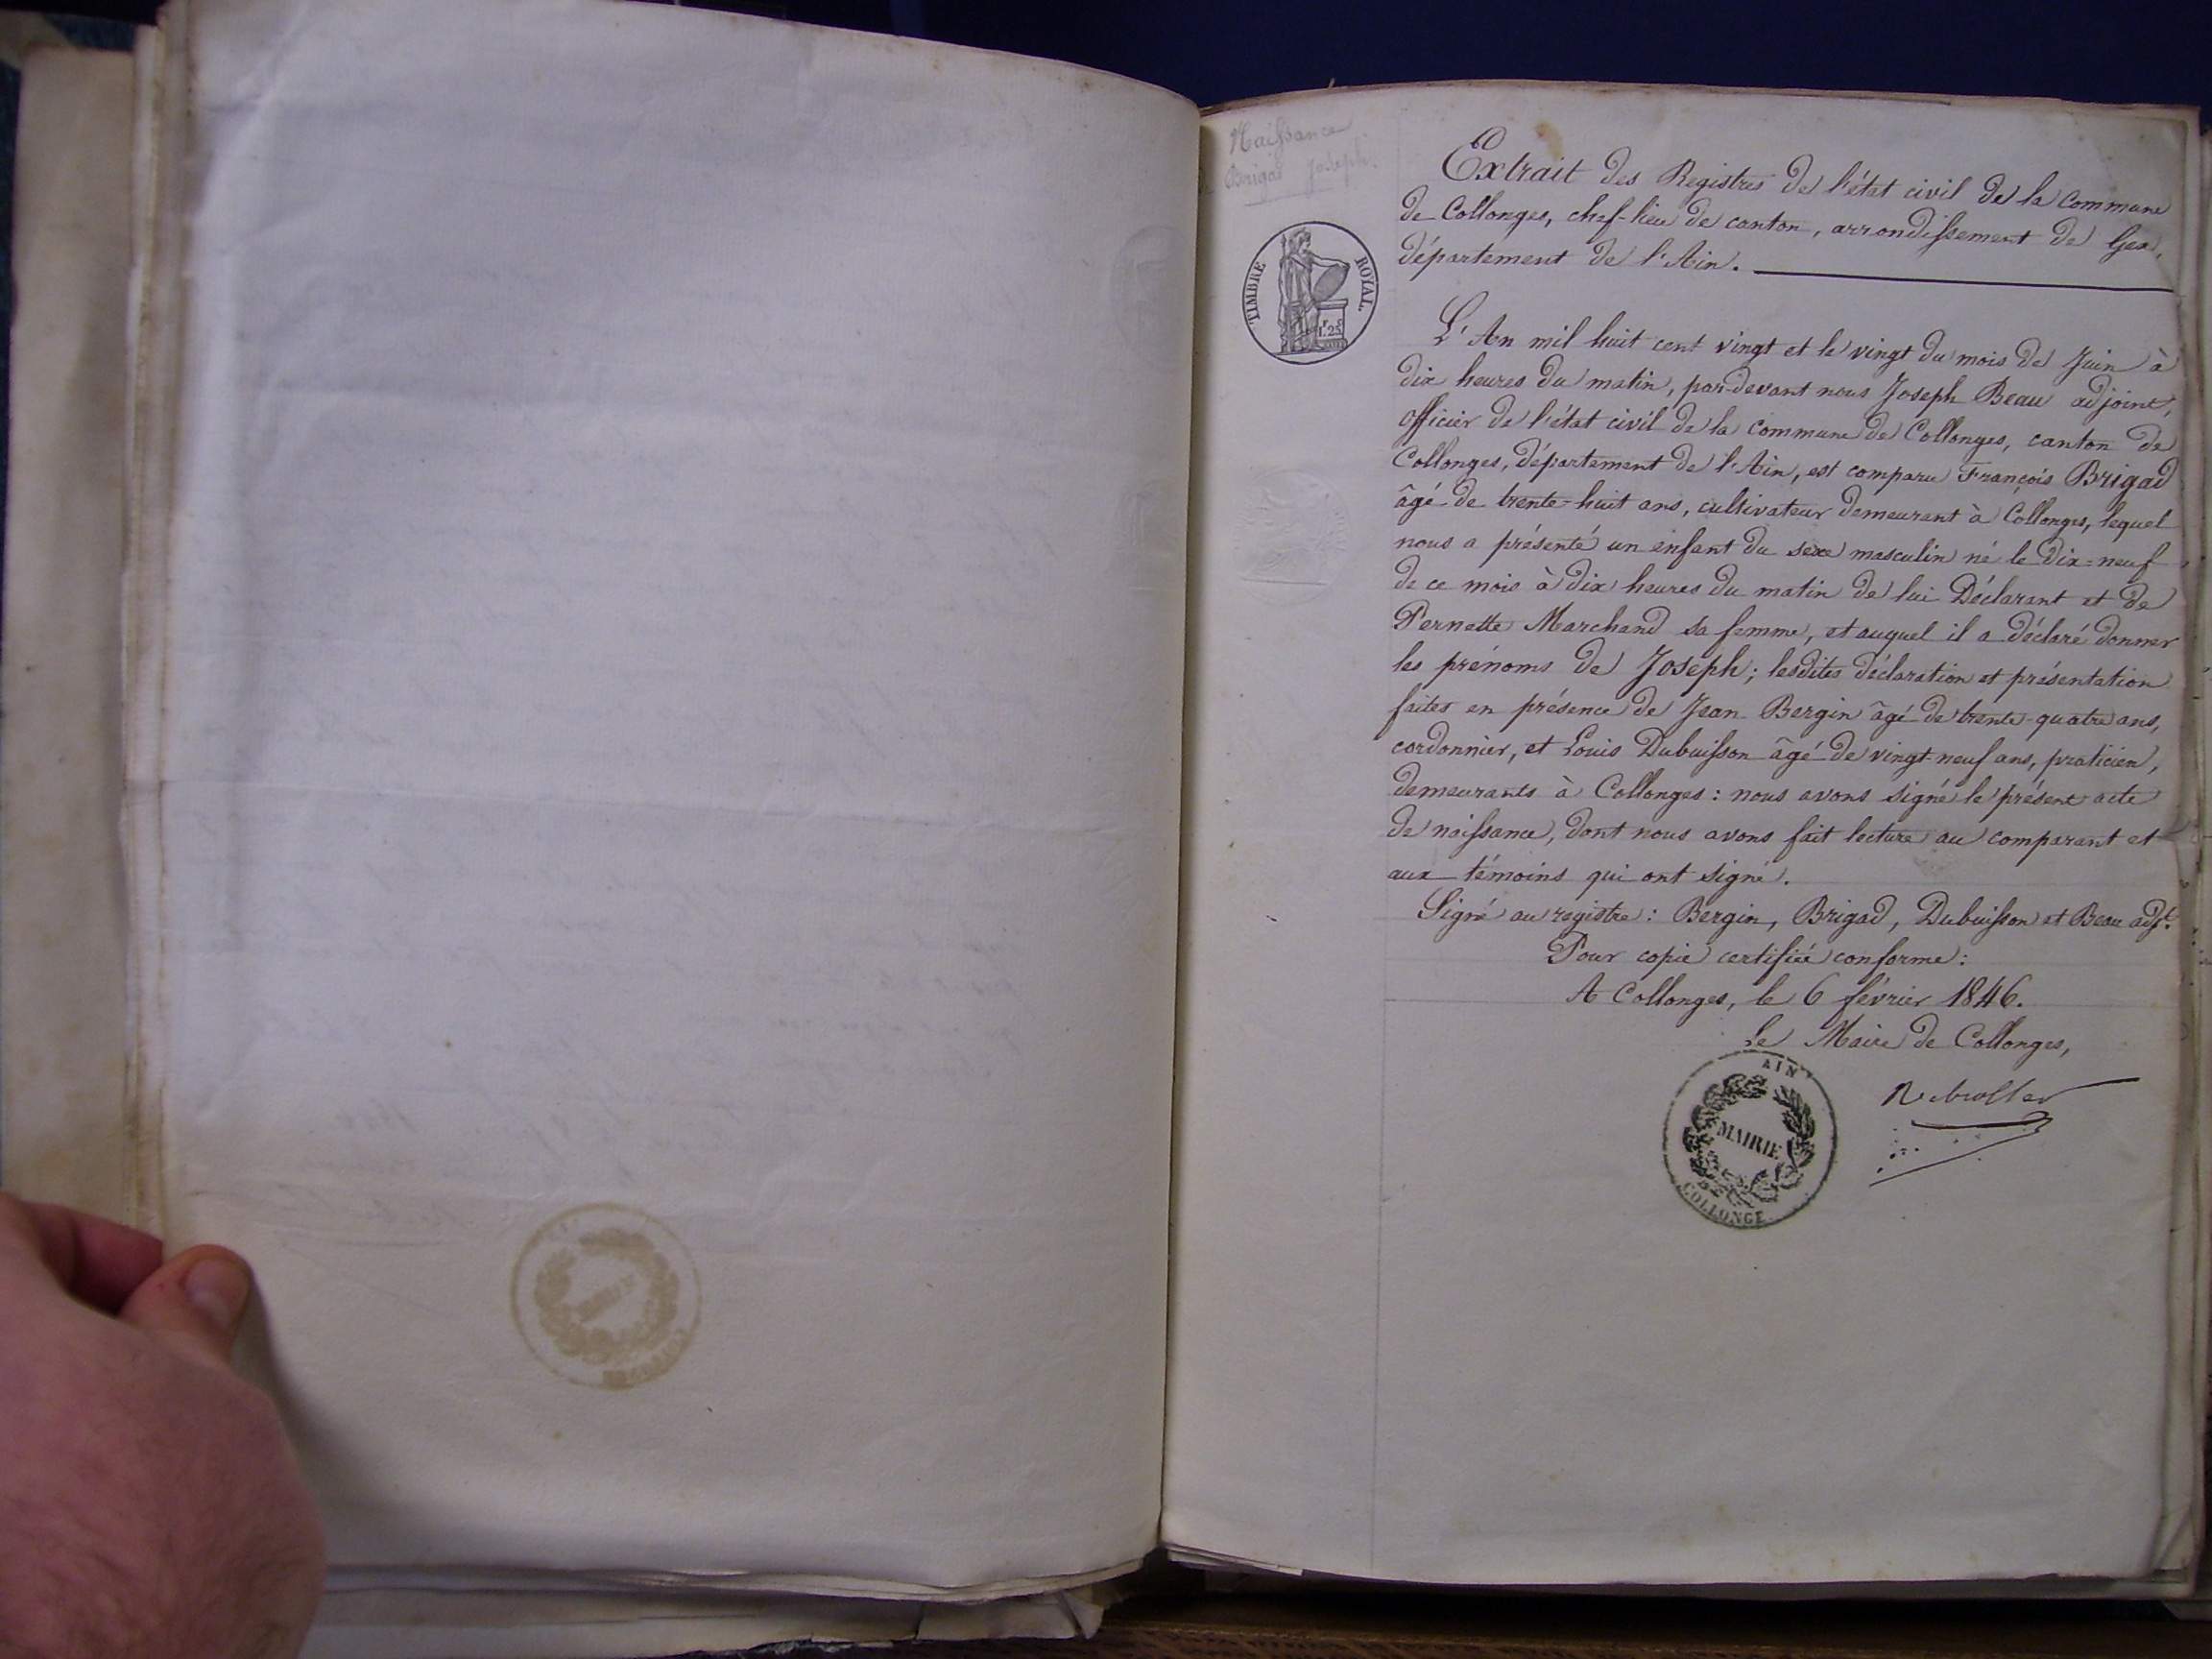 Naissance
Brigad Joseph.
TIMBRE ROYAL.
Extrait des Registres de l'état civil de la Commune
de Collonges, chef-lieu de canton, arrondissement de Gex,
département de l'Ain.
L'An mil huit cent vingt et le vingt du mois de Juin à
dix heures du matin, par-devant nous Joseph Beau adjoint,
officier de l'état civil de la Commune de Collonges, canton de
Collonges, département de l'Ain, est comparu François Brigad
âgé de trente-huit ans, cultivateur demeurant à Collonges, lequel
nous a présenté un enfant du sexe masculin né le dix-neuf
de ce mois à dix heures du matin de lui Déclarant et de
Pernette Marchand sa femme, et auquel il a déclaré donner
les prénoms de Joseph; lesdites déclaration et présentation
faites en présence de Jean Bergin âgé de trente-quatre ans,
cordonnier, et Louis Dubuisson âgé de vingt-neuf ans, praticien,
demeurants à Collonges: nous avons signé le présent acte
de naissance, dont nous avons fait lecture au comparant et
aux témoins qui ont signé.
Signé au registre: Bergin, Brigad, Dubuisson et Beau adjt.
Pour copie certifiée conforme:
A Collonges, le 6 février 1846.
Le Maire de Collonges,
AIN
MAIRIE
COLLONGE